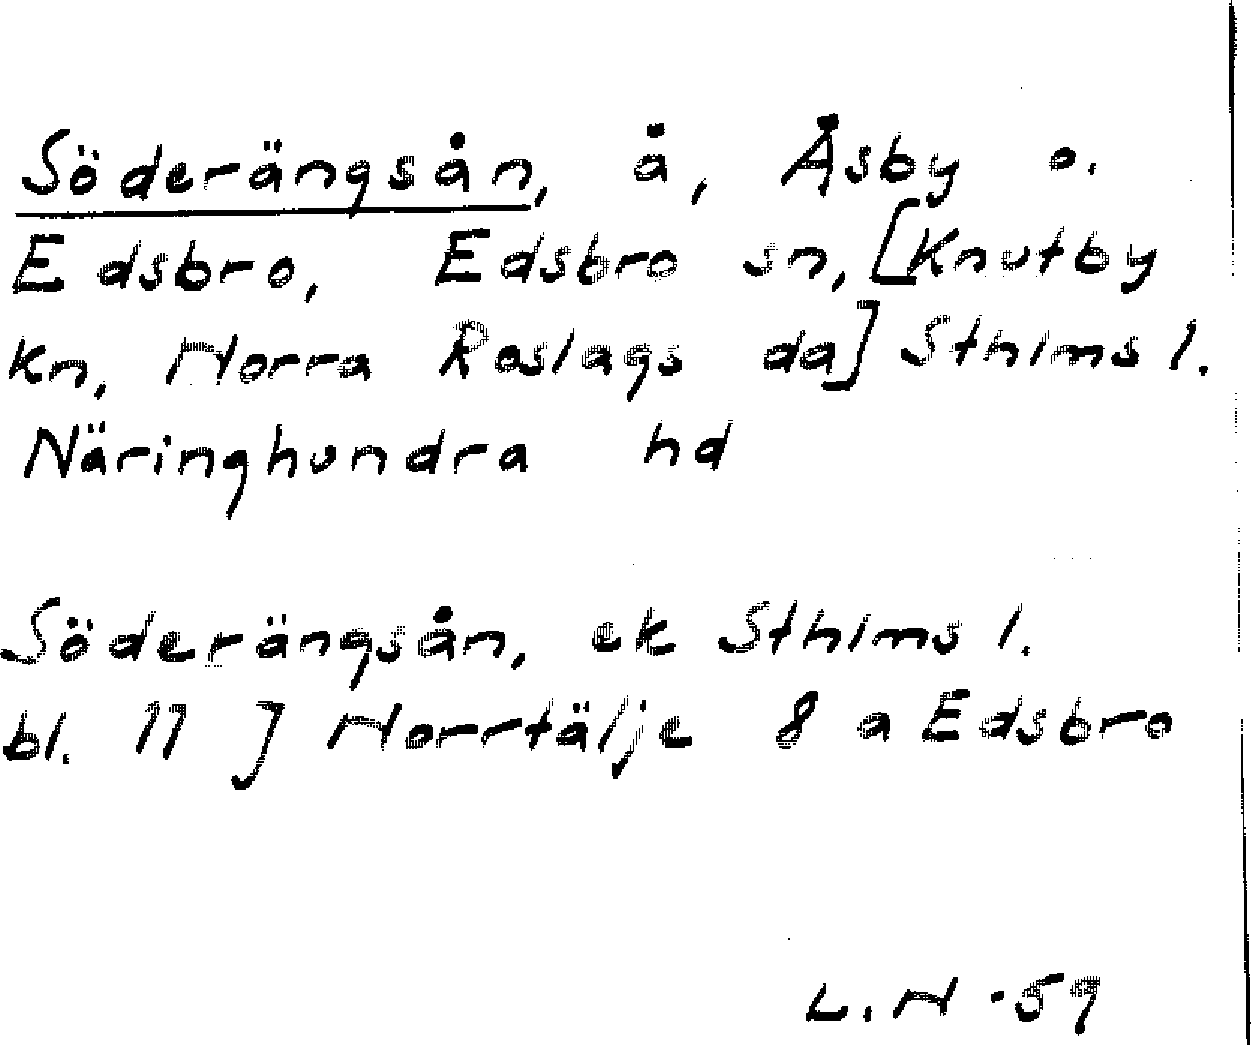 Söderängsån, å, Åsby o.
Edsbro, Edsbro sn, [Knutby
kn, Norra Roslags da] Sthlms l.
Näringhundra hd
Söderängsån, ek Sthlms l.
bl. 77 J Norrtälje 8 a Edsbro
L.N -59